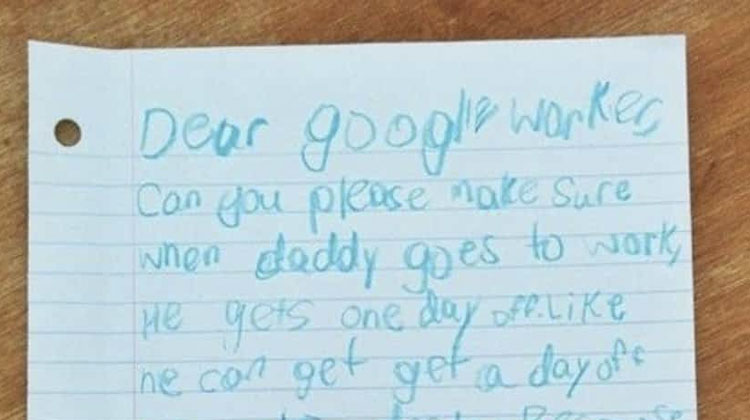 Dear google worker,
Can you please make sure
when daddy goes to work,
He gets one day off. Like
he can get get a day off